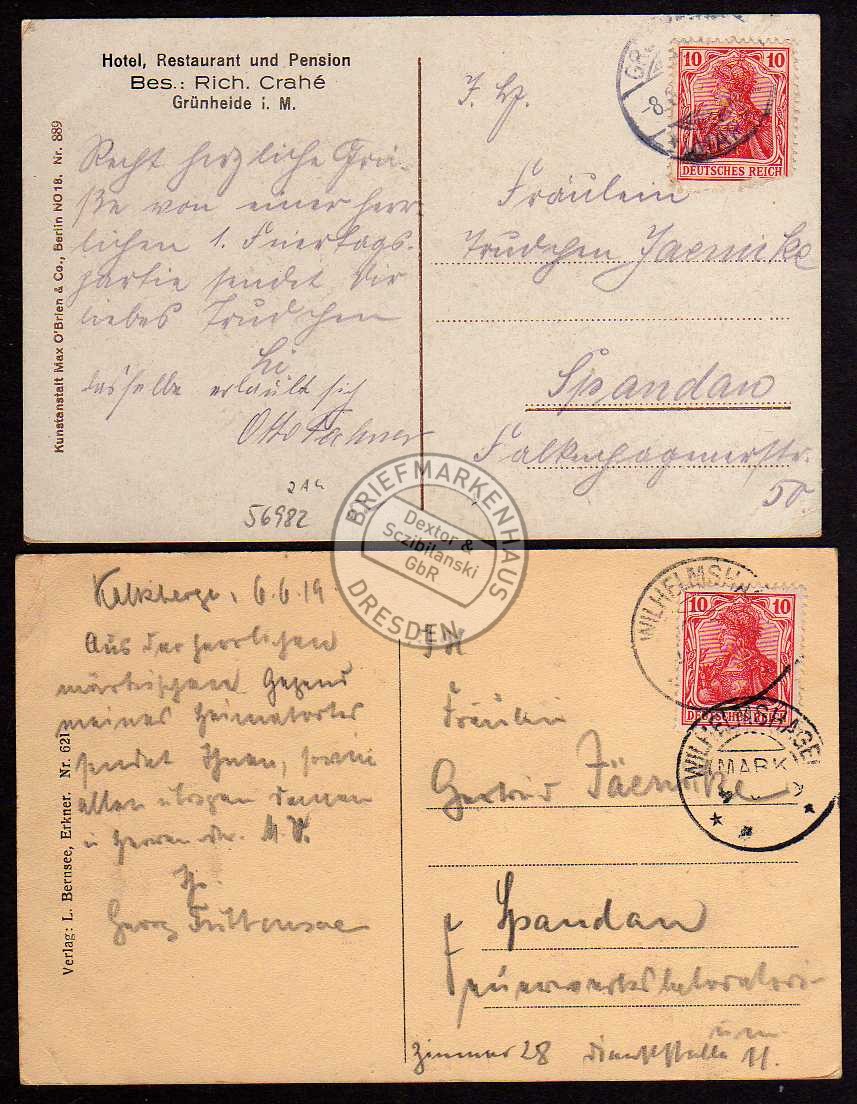 Hotel, Restaurant und Pension
Bes.: Rich. Crahé
Grünheide i. M.
Kunstanstalt Max O'Brien & Co., Berlin NO 18. Nr. 889
Recht herzliche Grü-
ße von einer herr-
lichen 1. Feiertags-
partie sendet Dir
liebes Trudchen
dasselbe erlaubt sich
Otto
56982
10 10
DEUTSCHES REICH
MARK
Fräulein
Trudchen Jaenicke
Spandau
Falkenhagenerstr.
50
BRIEFMARKENHAUS
Dextor &
Sczibilanski
GbR
DRESDEN
Kalkberge, 6.6.19
Aus der herrlichen
märkischen Gegend
meines Heimatortes
sendet Ihnen, sowie
allen übrigen Damen
u Herren der
Georg
Verlag: L. Bernsee, Erkner. Nr. 621
WILHELMSHA
10 10
DEUTSCHES REICH
WILHELMSHAGEN
(MARK)
Fräulein
Gertrud Jäenicke
Spandau
Feuerwerkslaboratori-
um
Zimmer 28 Dienststelle 11.